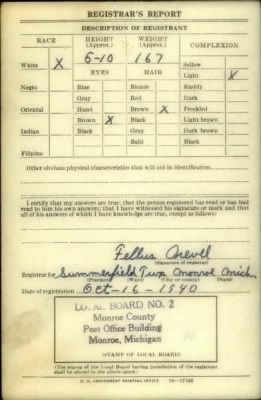 REGISTRAR'S REPORT
DESCRIPTION OF REGISTRANT
RACE HEIGHT (Approx.) WEIGHT (Approx.) COMPLEXION
White X 5-10 167 Sallow
EYES HAIR Light X
Negro Blue Blonde Ruddy
Gray Red Dark
Oriental Hazel Brown X Freckled
Brown X Black Light brown
Indian Black Gray Dark brown
Bald Black
Filipino
Other obvious physical characteristics that will aid in identification
I certify that my answers are true; that the person registered has read or has had
read to him his own answers; that I have witnessed his signature or mark and that
all of his answers of which I have knowledge are true, except as follows:
(Signature of registrar)
Registrar for Summerfield Twp. Monroe Mich.
(Precinct) (Ward) (City or county) (State)
Date of registration Oct-16-1940
LOCAL BOARD NO. 2
Monroe County
Post Office Building
Monroe, Michigan
(STAMP OF LOCAL BOARD)
(The stamp of the Local Board having jurisdiction of the registrant
shall be placed in the above space.)
U. S. GOVERNMENT PRINTING OFFICE